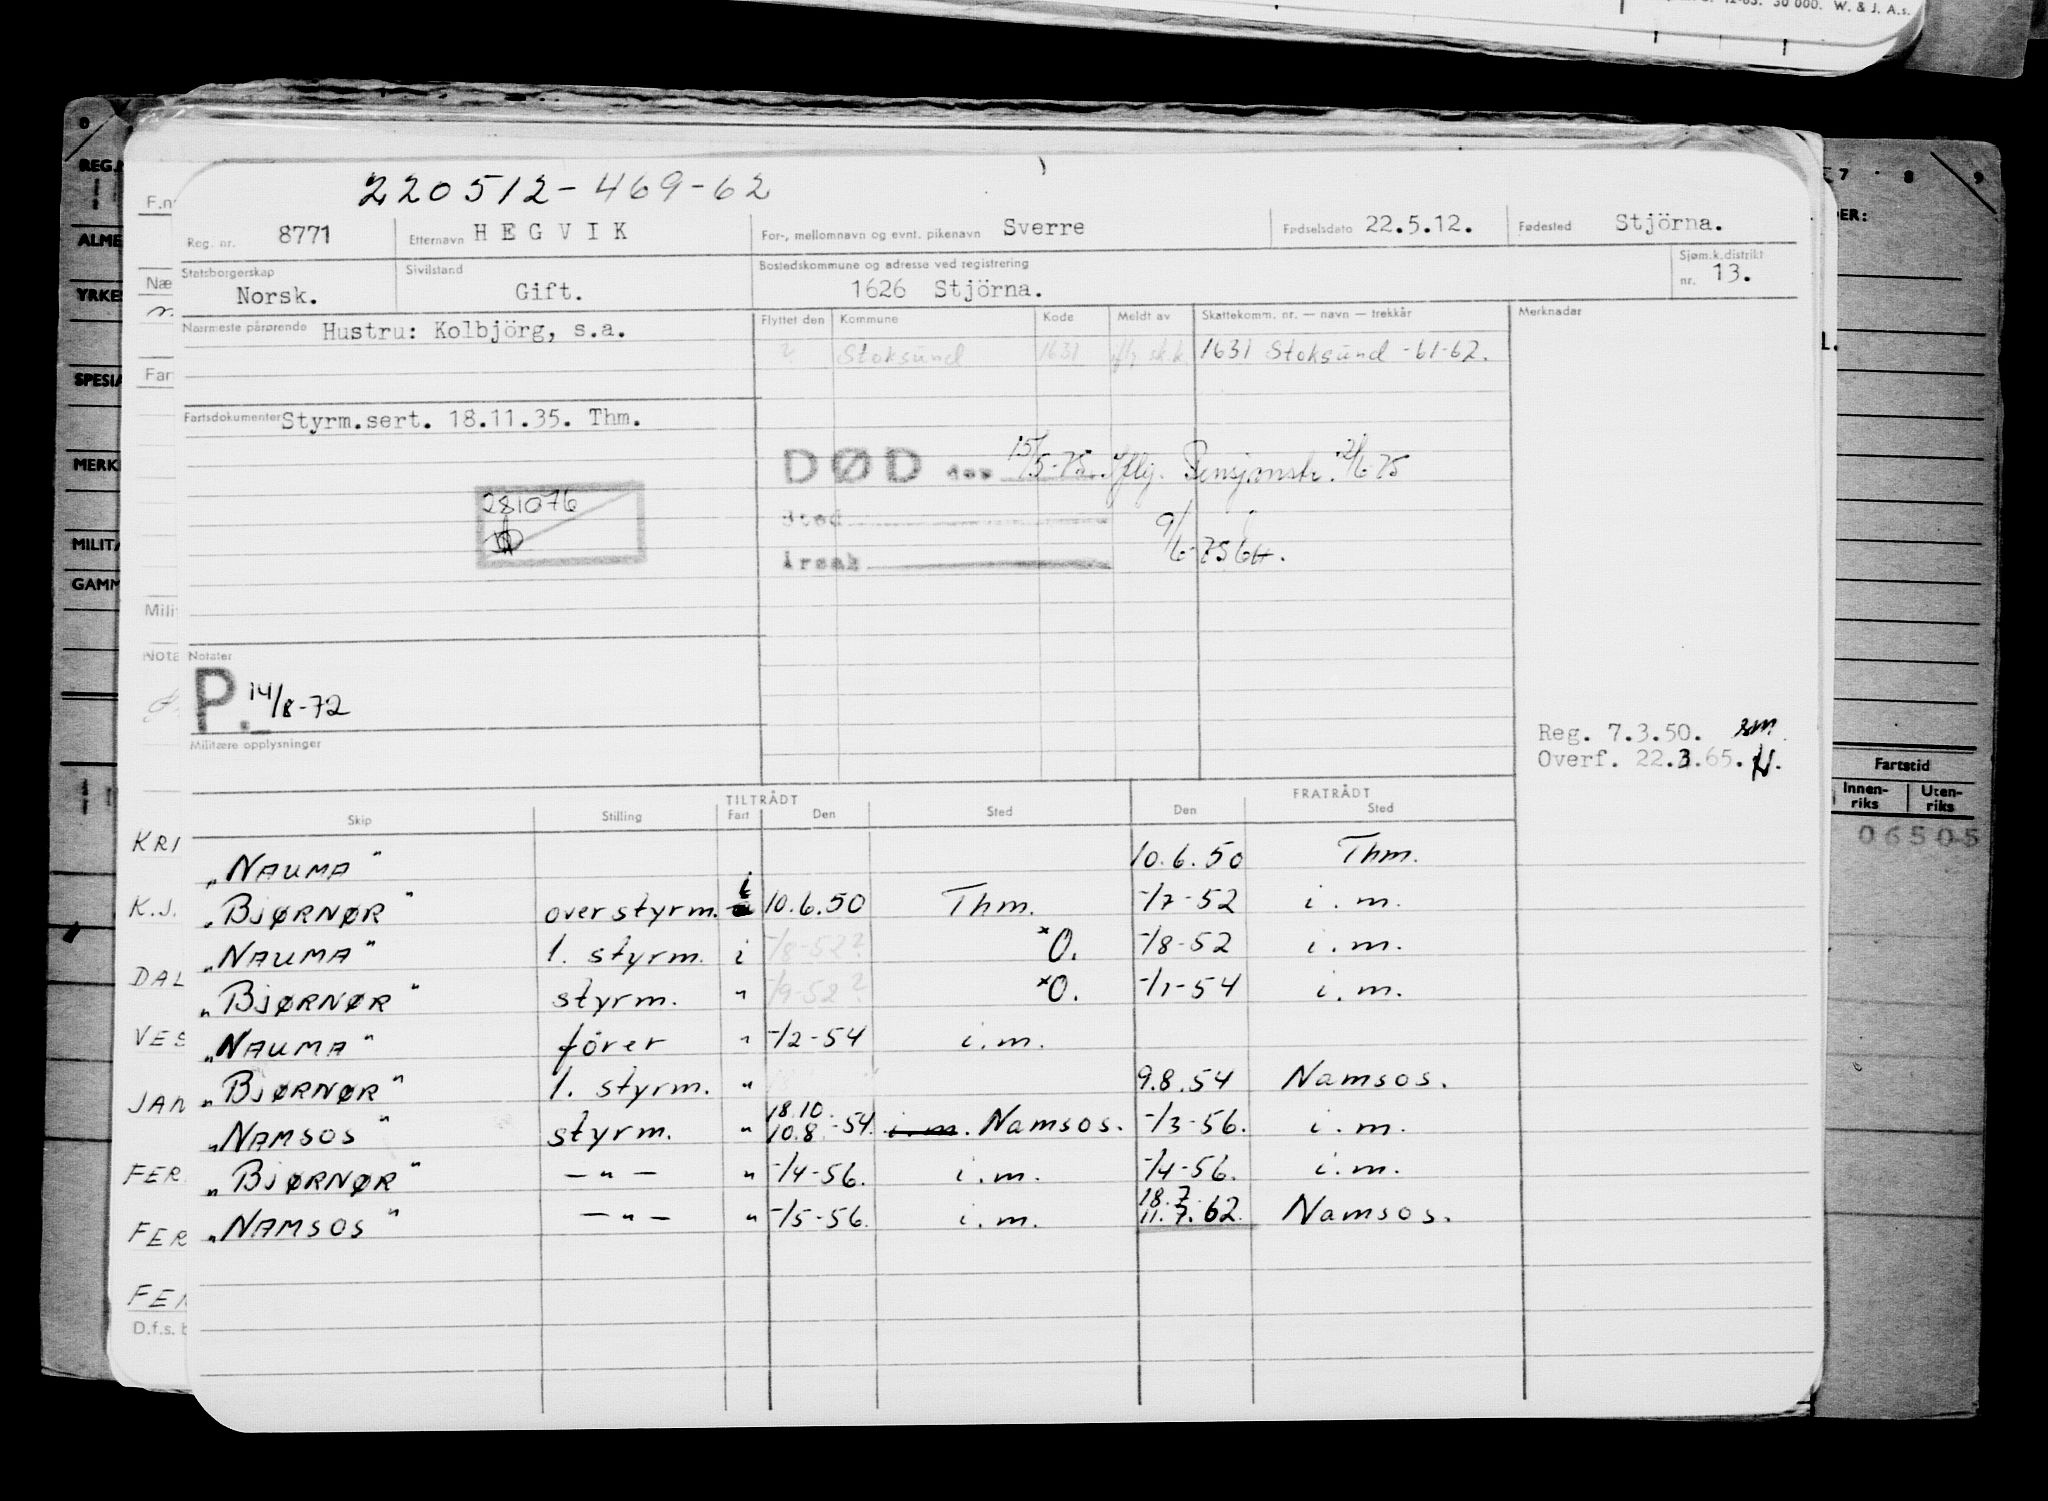 12-63. 30 000. W. & J. A.s.
220512-469-62
Reg. nr. 8771 Etternavn HEGVIK For-, mellomnavn og evnt. pikenavn Sverre Fødselsdato 22.5.12. Fødested Stjörna.
Statsborgerskap Norsk. Sivilstand Gift. Bostedskommune og adresse ved registrering 1626 Stjörna. Sjøm.k.distrikt nr. 13.
Nærmeste pårørende Hustru: Kolbjörg, s.a. Flyttet den Kommune Kode Meldt av Skattekomm. nr. — navn — trekkår Merknader
? Stoksund 1631 iflg sk.k. 1631 Stoksund -61-62.
Fartsdokumenter Styrm.sert. 18.11.35. Thm.
DØD den 15/5-75. iflg. Pensjonstr. 2/6-75
281076
Sted
9/6-75
Årsak
Notater
P. 14/8-72
Militære opplysninger
Reg. 7.3.50. sm.
Overf. 22.3.65.
TILTRÅDT FRATRÅDT
Skip Stilling Fart Den Sted Den Sted
"NAUMA" 10.6.50 Thm.
"BJØRNØR" overstyrm. i 10.6.50 Thm. -/7-52 i.m.
"NAUMA" 1. styrm. i -/8-52? *O. -/8-52 i.m.
"BJØRNØR" styrm. " -/9-52? *O. -/1-54 i.m.
"NAUMA" förer " -/2-54 i.m.
"BJØRNØR" 1. styrm. " 9.8.54 Namsos.
"NAMSOS" styrm. " 18.10. 10.8.-54. i.m. Namsos. -/3-56. i.m.
"BJØRNØR" —"— " -/4-56. i.m. -/4-56. i.m.
"NAMSOS" —"— " -/5-56. i.m. 18.7. 11.7.62. Namsos.
REG.
ALME
YRKE
SPESIA
MERK
MILITÆ
GAMM
F.nr
Næ
Far
Mili
Nota
KRI
K.J.
DAL
VES
JAN
FER
FER
FER
D.f.s. b
7 8 9
DER:
Fartstid
Innen-riks Uten-riks
06505